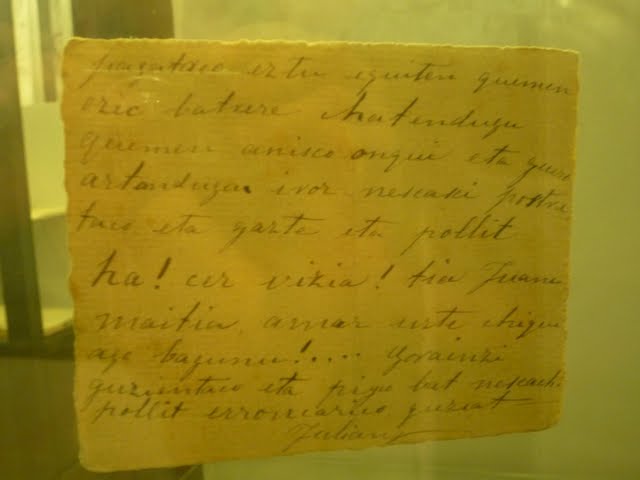 pagataco eztu eguiten quemen
ozic batxere chatendugu
quemen anisco ongui eta guero
artandugu ivor nescaxi postre
taco eta gazte eta pollit
ha! cer vizia! tia Juana
maitia, amar urte chiqui
ago bagunu!.... Gorainzi
guzientaco eta pizco bat nescachi
pollit erroncarico guziat
Julian